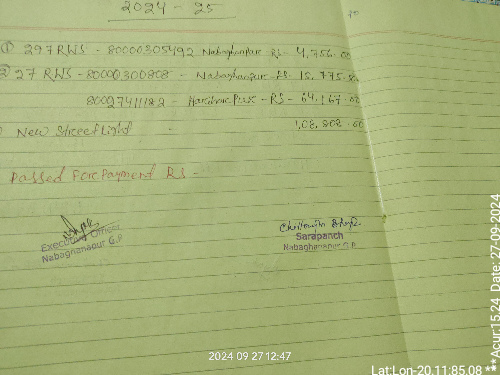 2024 - 25
① 297 RWS - 80000305492 Nabaghanpur Rs - 4,756.00
② 27 RWS - 80000300808 - Nabaghanpur - Rs.
80027411122 - - RS - 64,167.00
New Street light " 1,08,202.00
Passed For Payment RS -
Executive Officer
Nabaghanapur G.P
Sarapanch
Nabaghanapur G.P
2024 09 27 12:47
Lat:Lon-20.11:85.08
**Acur:15.24, Date: 27/09/2024